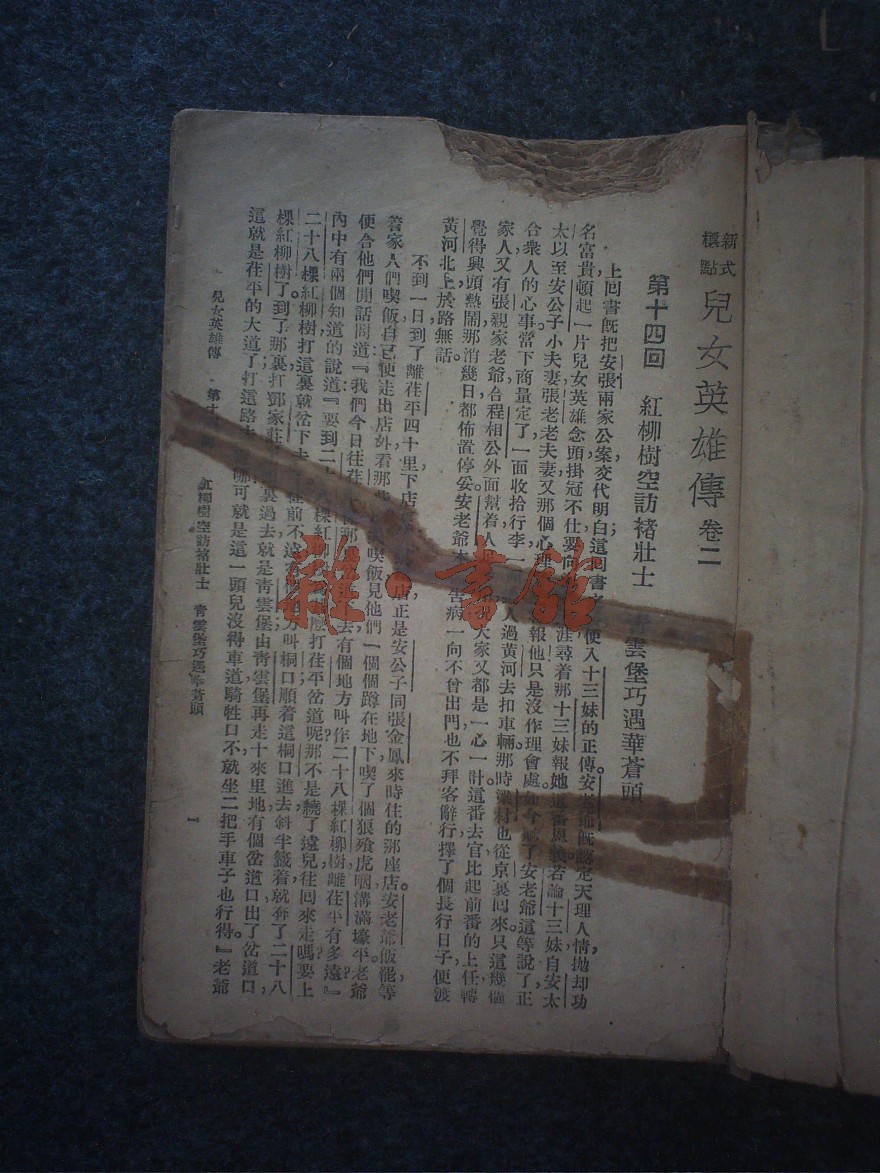 新式標點 兒女英雄傳 卷二
第十四回 紅柳樹空訪褚壯士 雲堡巧遇華蒼頭
上回書既把安張兩家公案交代明白，這回書 便入十三妹的正傳。安老爺既認定天理人情，拋却功
名富貴，頓起一片兒女英雄念頭，掛冠不仕，要向 涯尋着那十三妹，報她這番恩義。若論十三妹，自安太
太以至安公子小夫妻，張老老夫妻，又那個心裡 報他？只是沒作理會處。如今 了安老爺這等說了，正
合衆人的心事，當下商量定了，一面收拾行李， 人過黃河去扣車輛。那時梁材也從京裏回來，只這幾個
家人，又有張親家老爺合程相公外面幫着，人 大家又都是一心一計，這番去官比起前番的上任，轉
覺得興頭熱鬧。那消幾日，都佈置停妥。安老爺本 告病，一向不曾出門，也不拜客辭行，擇了個長行日子，便渡
黃河北上，於路無話。
不到一日，到了離茌平四十里下店， 店正是安公子同張金鳳來時住的那座店。安老爺飯罷，等
着家人們喫飯，自已便走出店外，看那些 喫飯，見他們一個個蹲在地下，喫了個狼飧虎咽，溝滿壕平。老爺
便合他們閒話，問道：『我們今日往茌 那 去有個地方叫作二十八棵紅柳樹，離茌平有多遠？』
內中有兩個知道的，說道：『要到二十八棵紅柳 打茌平岔道呢？那不是繞了遠兒往回來走嗎？要上
二十八棵紅柳樹，打這裏就岔下去 往前不遠有 方叫桐口，順着這桐口進去，斜半籤着就奔了二十八
棵紅柳樹了。到了那裏，打鄧家莊 裏過去，就是靑雲堡，由靑雲堡再走十來里地，有個岔道口，出了岔道口，
這就是茌平的大道了。打這路 可就是這一頭兒沒得車道，騎牲口，不就坐二把手車子也行得。』老爺
兒女英雄傳 第十四回 紅柳樹空訪褚壯士 青雲堡巧遇華蒼頭
1
雜·書館